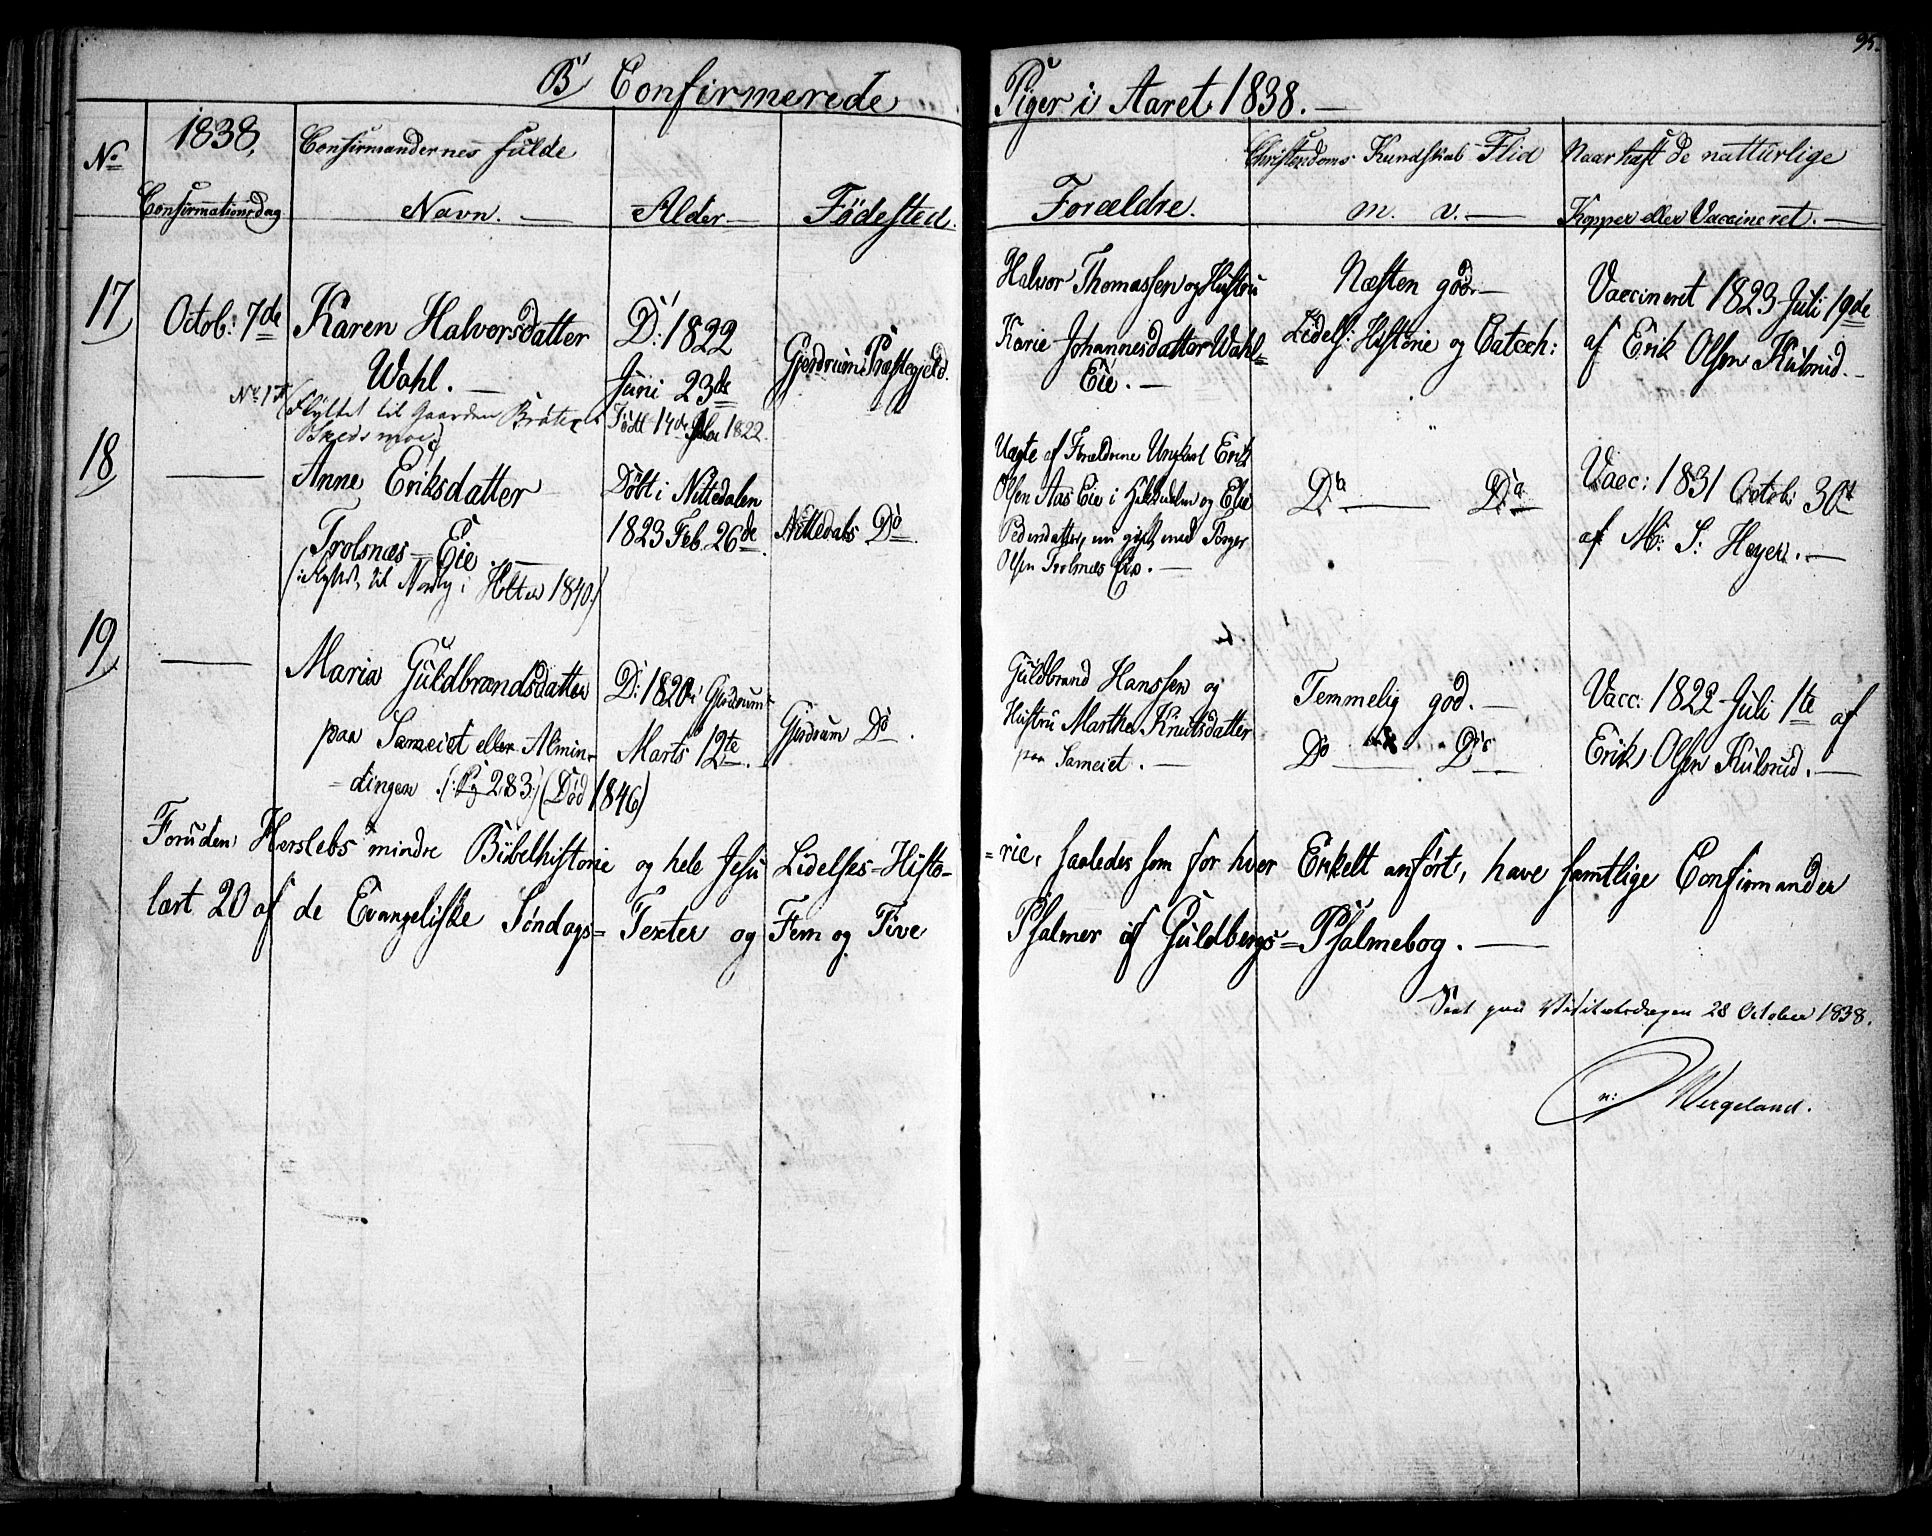 95.
B, Confirmerede Piger i Aaret 1838. —
No
1838,
Confirmationsdag
Confirmandernes fulde
Navn. —
Alder —
Fødested.
Forældre.
Christendoms Kundskab Flid
m. v. —
Naar haft de natturlige
Kopper eller Vaccineret. —
17
Octob: 7de
Karen Halvorsdatter
Wahl. —
No 17 (Flyttet til Gaarden Bråten
Skedsmoe)
D: 1822
Juni 23de
Født 14de 1822.
Gjerdrums Præstegjeld.
Halvor Thomassen og Hustru
Karie Johannesdatter Wahl=
Eie. —
Næsten god —
Lidels: Historie og Catech:
Vaccineret 1823 Juli 19de
af Erik Olsen Kulsrud. —
18
—
Anne Eriksdatter
Trolsnæs=Eie —
(Flyttet til Nordby i Holter 1840)
Døbt i Nittedalen
1823 Feb. 26de.
Nittedals Do
Uægte af Forældrene Ungkarl Erik
Olsen Aas Eie i og Elie
Pedersdatter, nu gift med Torger
Olsen Trolsnæs Eie. —
Do — Do
Vacc: 1831 Octob: 30te
af M: S: Heyer. —
19
—
Maria Guldbrandsdatter
paa Sameiet eller Almin-
=dingen (: Pag 283.) (Død 1846)
D: 1820 i Gjerdrum
Marts 12te.
Gjerdrum Do.
Guldbrand Hanssen og
Hustru Marthe Knudsdatter
paa Sameiet. —
Temmelig god. —
Do — Do
Vacc: 1822 Juli 1te af
Erik Olsen Kulsrud. —
Foruden Herslebs mindre Bibelhistorie og hele Jesu Lidelses=Histo-
=rie, saaledes som for hver Enkelt anført, have samtlige Confirmander
lært 20 af de Evangeliske Søndags=Texter og Fem og Tive
Psalmer af Guldbergs=Psalmebog. —
Seet paa Visitatsdagen 28 October 1838.
n: Wergeland.